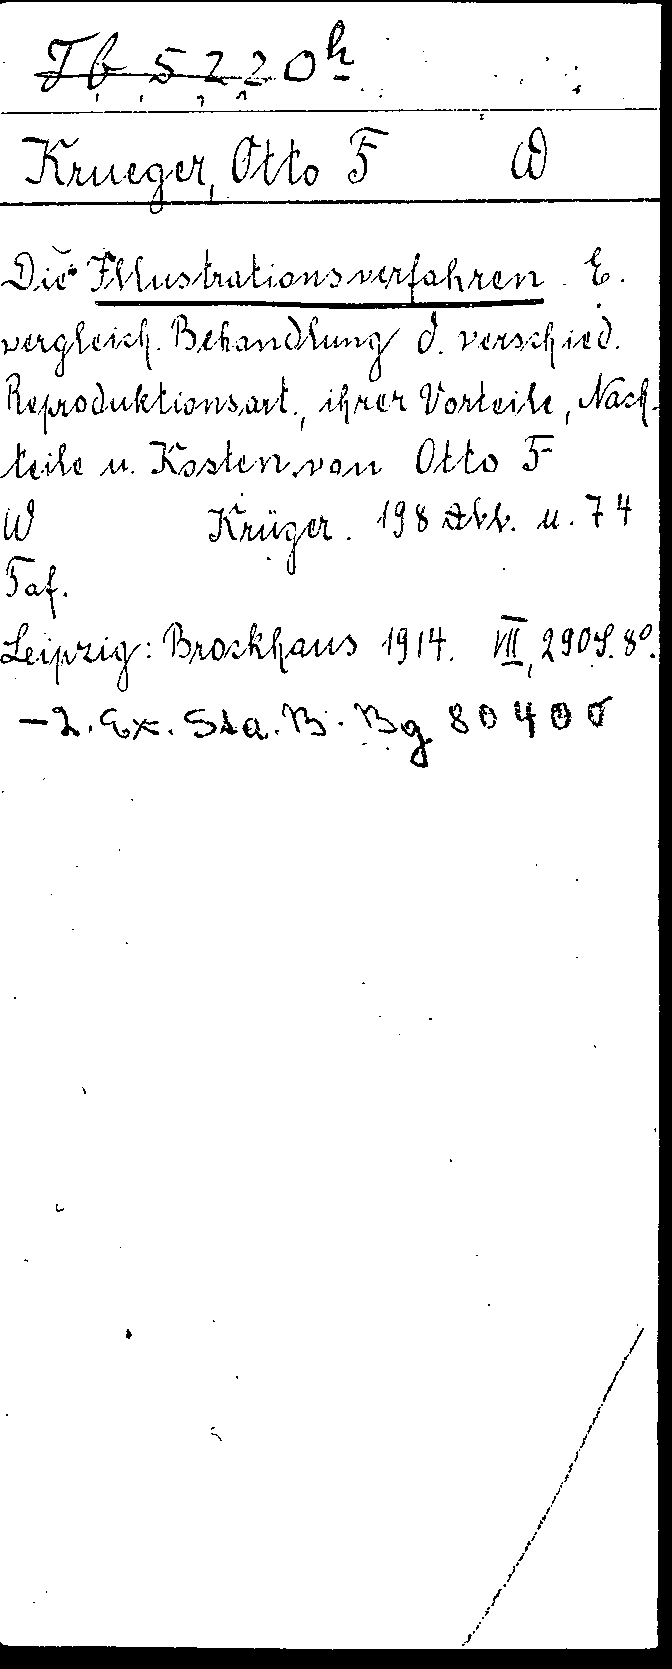 Tb 5220h
Krueger, Otto F W
Die Illustrationsverfahren. E.
vergleich. Behandlung d. verschied.
Reproduktionsart., ihrer Vorteile, Nach-
teile u. Kosten. von Otto F
W Krüger. 198 Abb. u. 74
Taf.
Leipzig: Brockhaus 1914. VIII, 290 S. 8°.
- 2. Ex. Sta. B. Bg 80400